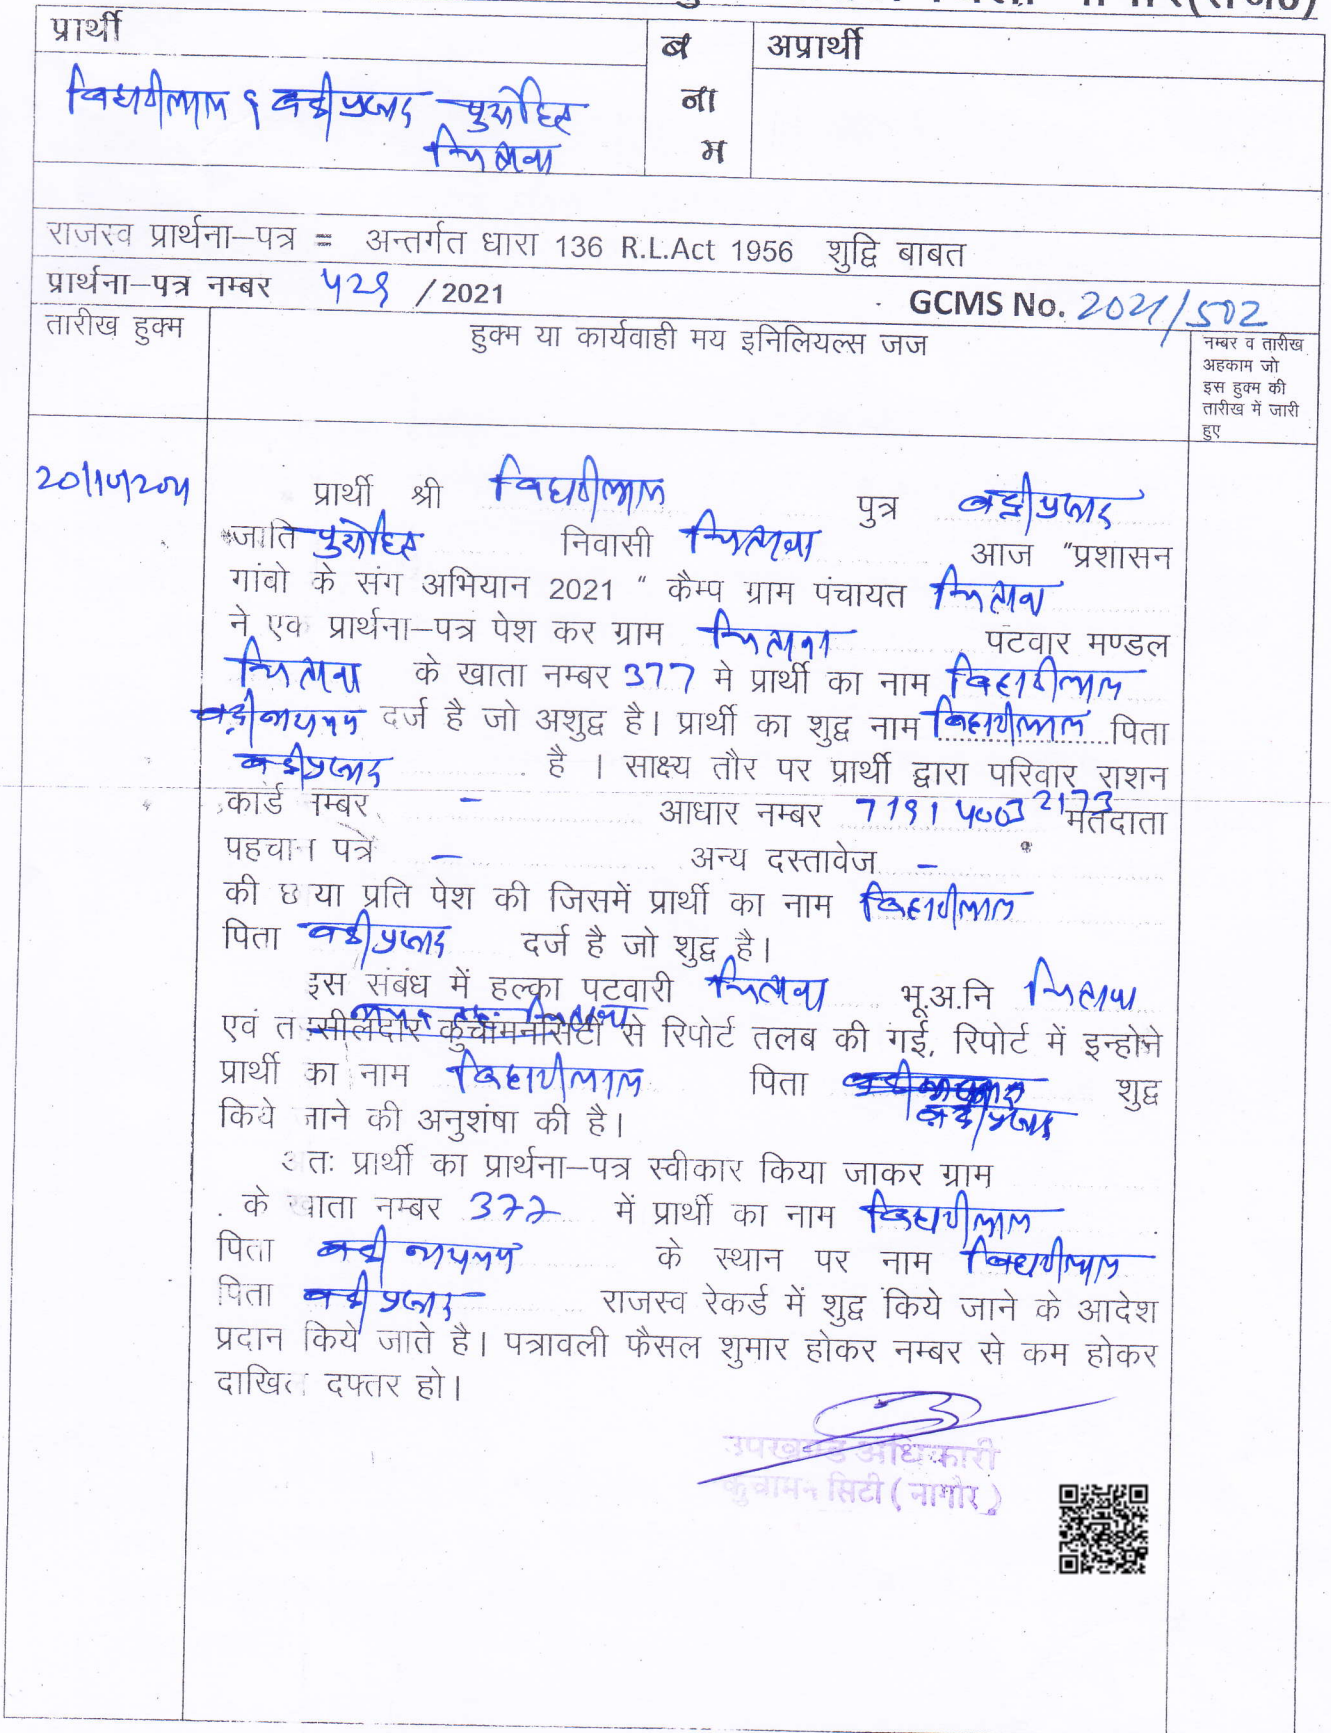 प्रार्थी
ब
ना
म
अप्रार्थी
बिहारीलाल S बद्रीप्रसाद पुरोहित
चितावा
राजस्व प्रार्थना–पत्र = अन्तर्गत धारा 136 R.L.Act 1956 शुद्वि बाबत
प्रार्थना–पत्र नम्बर 529 / 2021
GCMS No. 2021/502
तारीख हुक्म
हुक्म या कार्यवाही मय इनिलियल्स जज
नम्बर व तारीख
अहकाम जो
इस हुक्म की
तारीख में जारी
हुए
20/10/2021
प्रार्थी श्री बिहारीलाल पुत्र बद्रीप्रसाद
जाति पुरोहित निवासी चितावा आज "प्रशासन
गांवो के संग अभियान 2021 " कैम्प ग्राम पंचायत चितावा
ने एक प्रार्थना–पत्र पेश कर ग्राम चितावा पटवार मण्डल
चितावा के खाता नम्बर 377 मे प्रार्थी का नाम बिहारीलाल
बद्रीनारायण दर्ज है जो अशुद्व है। प्रार्थी का शुद्व नाम बिहारीलाल पिता
बद्रीप्रसाद है । साक्ष्य तौर पर प्रार्थी द्वारा परिवार राशन
कार्ड नम्बर – आधार नम्बर 7191 4003 2173 मतदाता
पहचान पत्र – अन्य दस्तावेज –
की छाया प्रति पेश की जिसमें प्रार्थी का नाम बिहारीलाल
पिता बद्रीप्रसाद दर्ज है जो शुद्व है।
इस संबंध में हल्का पटवारी चितावा भू.अ.नि चितावा
नायब तह. चितावा
एवं तहसीलदार कुचामनसिटी से रिपोर्ट तलब की गई, रिपोर्ट में इन्होने
प्रार्थी का नाम बिहारीलाल पिता शुद्व
बद्रीप्रसाद
किये जाने की अनुशंषा की है।
अतः प्रार्थी का प्रार्थना–पत्र स्वीकार किया जाकर ग्राम
के खाता नम्बर 377 में प्रार्थी का नाम बिहारीलाल
पिता बद्री नारायण के स्थान पर नाम बिहारीलाल
पिता बद्रीप्रसाद राजस्व रेकर्ड में शुद्व किये जाने के आदेश
प्रदान किये जाते है। पत्रावली फैसल शुमार होकर नम्बर से कम होकर
दाखिल दफ्तर हो।
उपखण्ड अधिकारी
कुचामन सिटी ( नागौर )